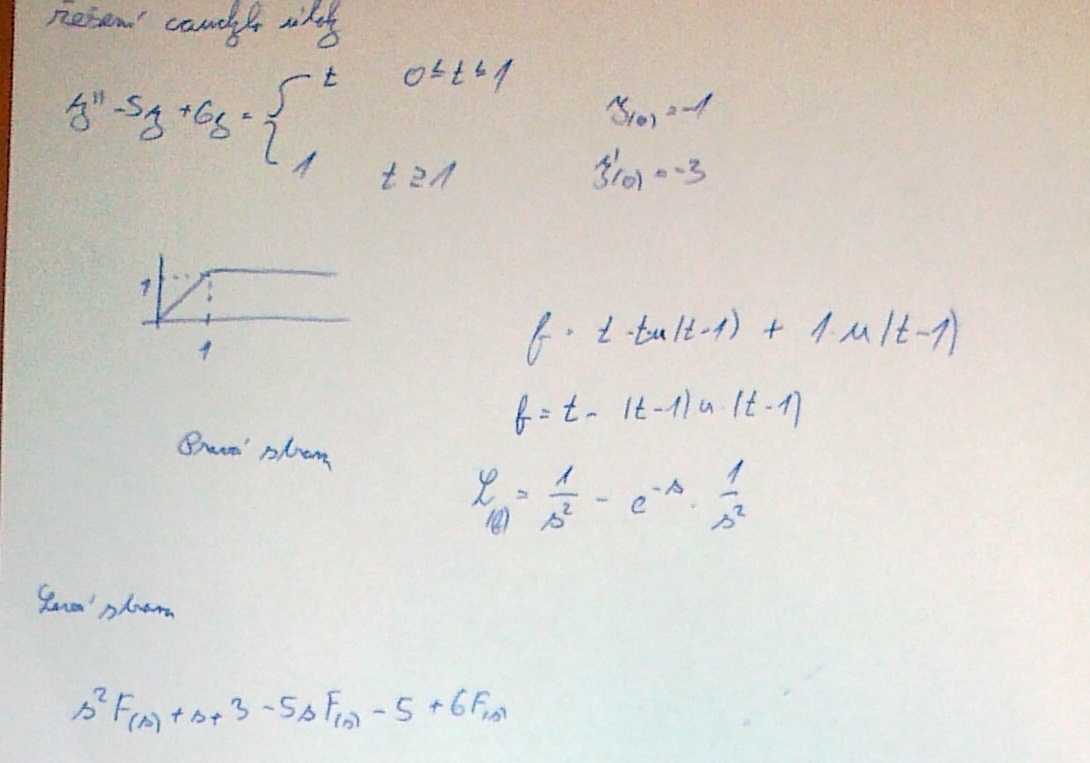 Řešení cauchyho úlohy
y'' - 5y + 6y = { t 0 ≤ t ≤ 1
1 t ≥ 1
y(0) = -1
y'(0) = -3
1
1
f = t - tu(t-1) + 1·u(t-1)
f = t - (t-1)u·(t-1)
Pravá strana
ℒ(f) = 1/s² - e^-s · 1/s²
Levá strana
s²F(s) + s + 3 - 5sF(s) - 5 + 6F(s)